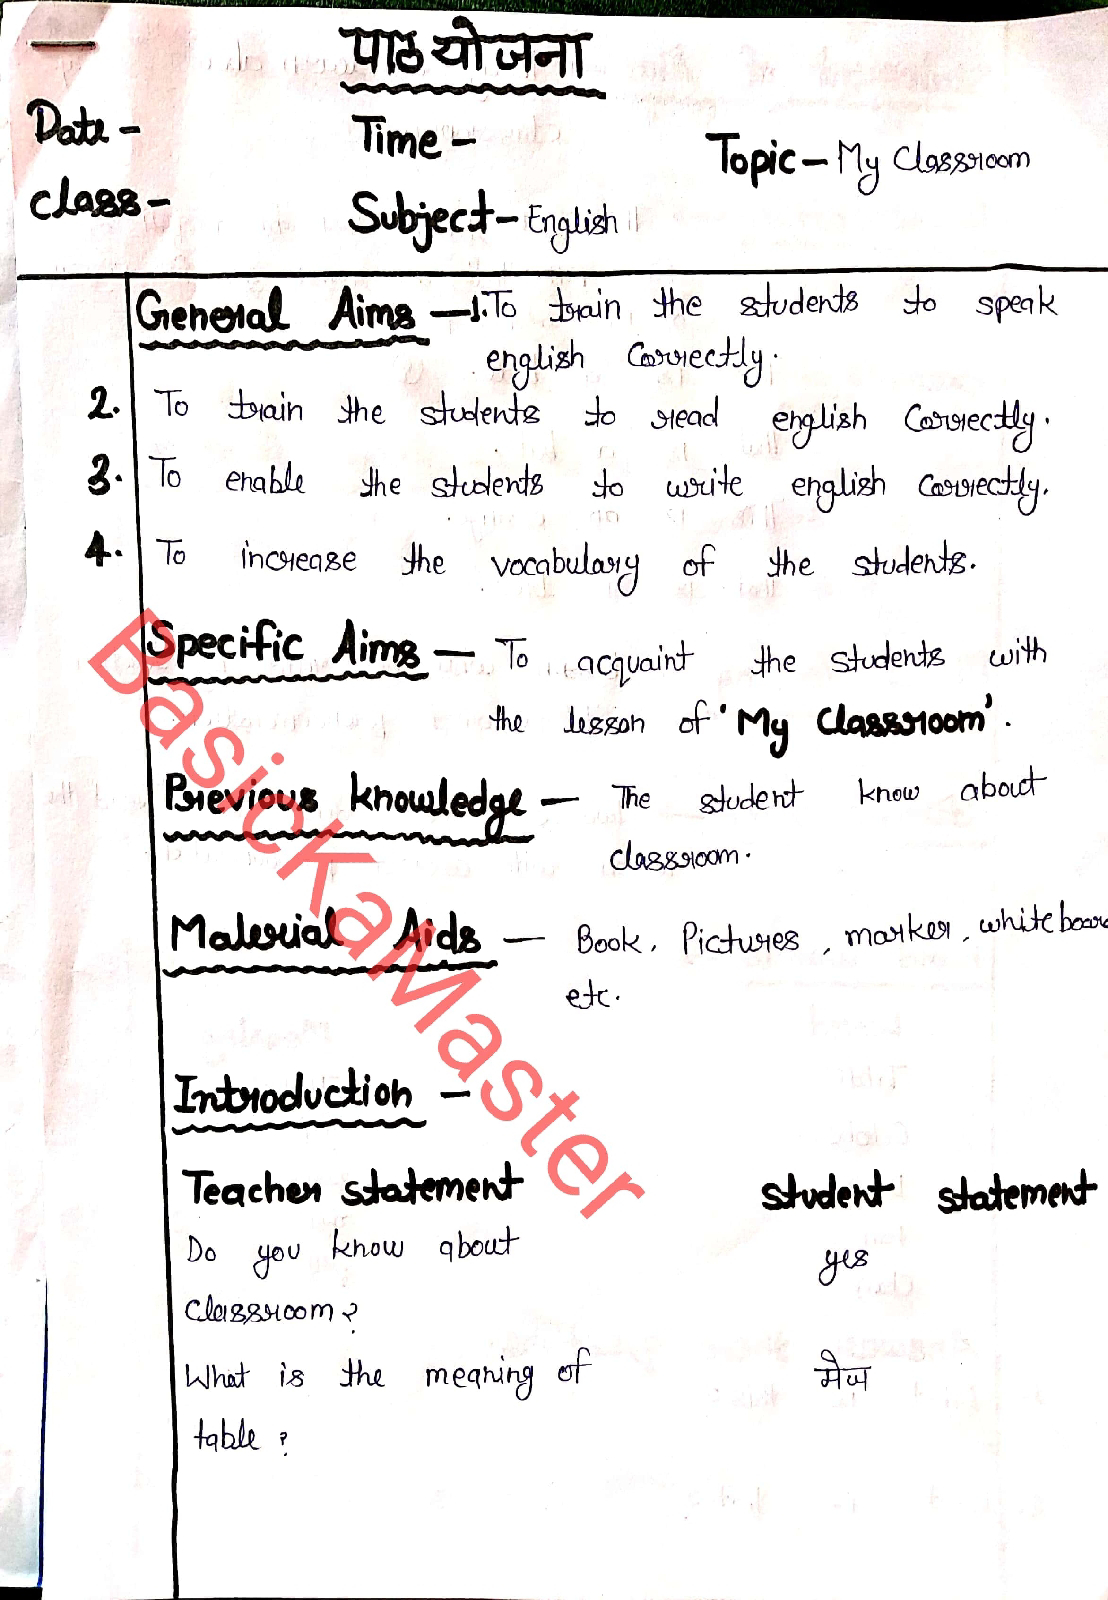 पाठ योजना
Date - Time - Topic - My Classroom
Class - Subject - English
General Aims - 1. To train the students to speak
english correctly.
2. To train the students to read english correctly.
3. To enable the students to write english correctly.
4. To increase the vocabulary of the students.
Specific Aims - To acquaint the students with
the lesson of 'My Classroom'.
Previous knowledge - The student know about
classroom.
Material Aids - Book, Pictures, marker, whiteboard
etc.
Introduction -
Teacher statement student statement
Do you know about yes
Classroom?
What is the meaning of मेज
table?
BasicKaMaster